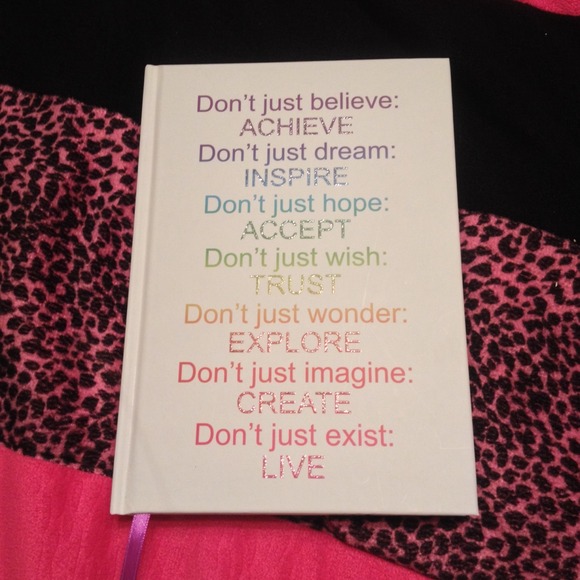 Don't just believe:
ACHIEVE
Don't just dream:
INSPIRE
Don't just hope:
ACCEPT
Don't just wish:
TRUST
Don't just wonder:
EXPLORE
Don't just imagine:
CREATE
Don't just exist:
LIVE